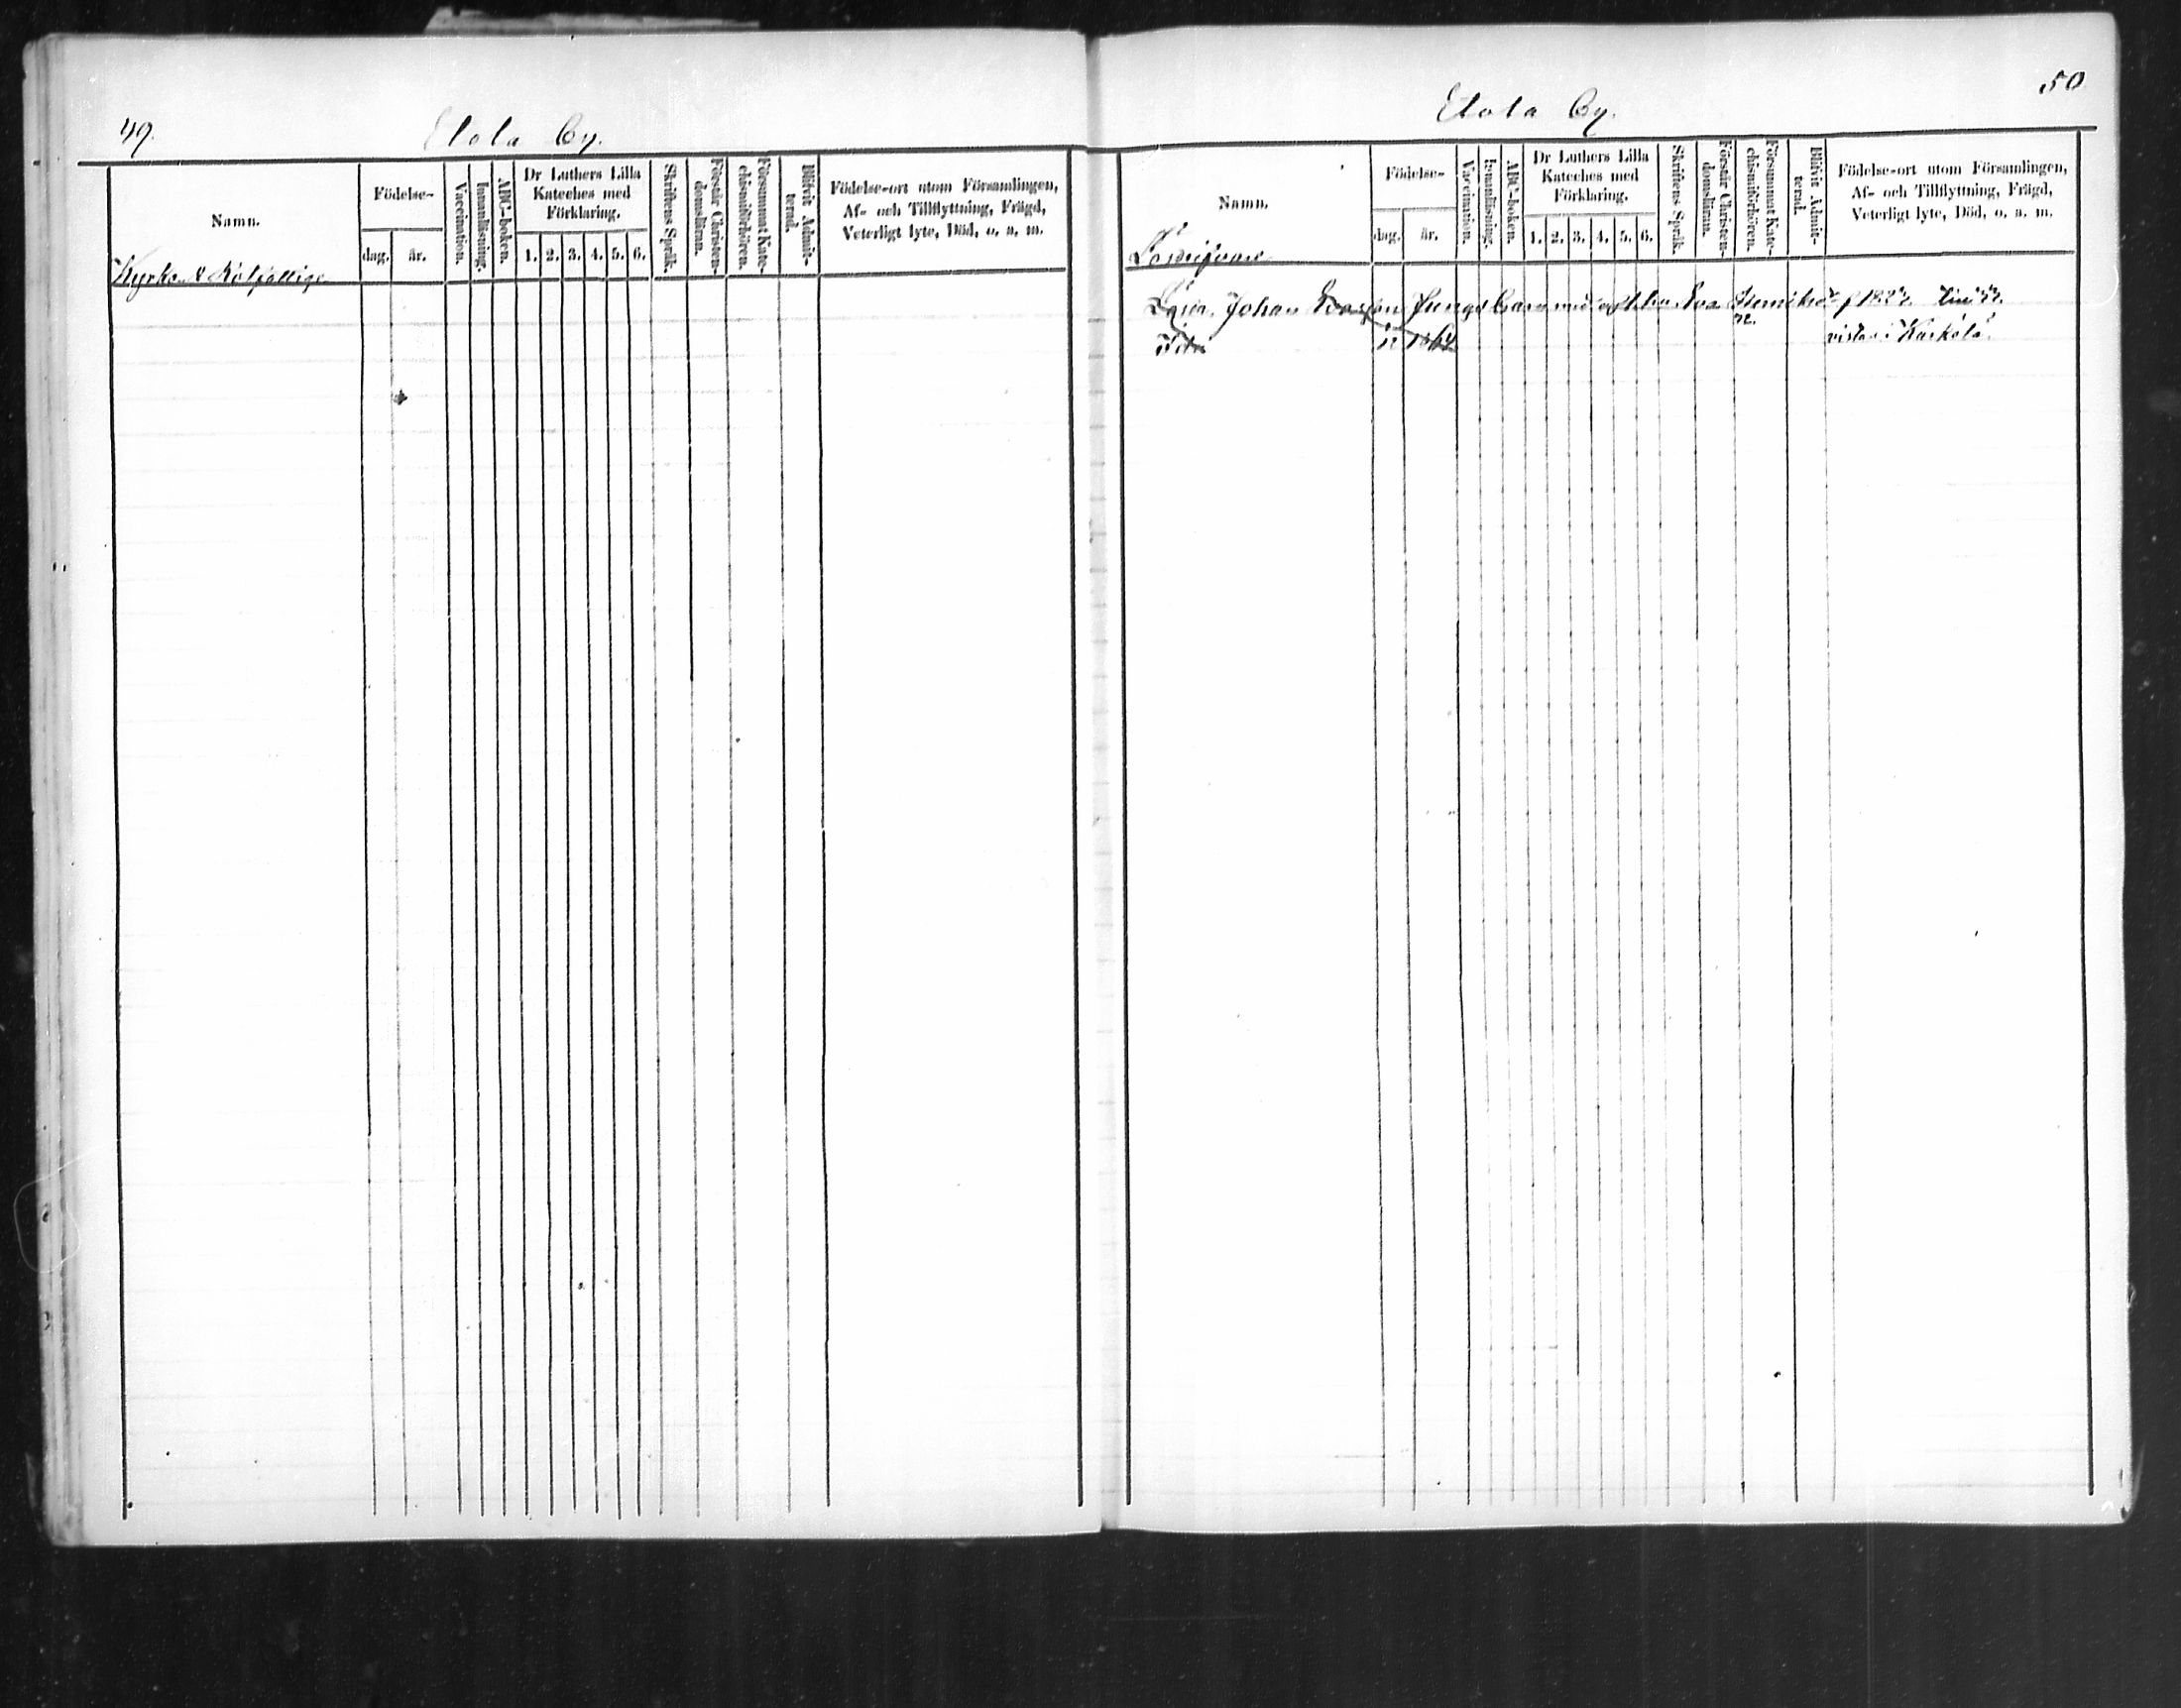 49.
Etola By.
Namn.
Födelse-
dag.
år.
Vaccination.
Innanläsning.
ABC-boken.
Dr Luthers Lilla
Kateches med
Förklaring.
1. 2. 3. 4. 5. 6.
Skriftens Språk.
Förstår Christen-
domsläran.
Försummat Kate-
chismiförhören.
Blifvit Admit-
terad.
Födelse-ort utom Församlingen,
Af- och Tillflyttning, Frägd,
Veterligt lyte, Död, o. s. m.
Kyrko &
50
Etola By.
Namn.
Födelse-
dag.
år.
Vaccination.
Innanläsning.
ABC-boken.
Dr Luthers Lilla
Kateches med
Förklaring.
1. 2. 3. 4. 5. 6.
Skriftens Språk.
Förstår Christen-
domsläran.
Försummat Kate-
chismiförhören.
Blifvit Admit-
terad.
Födelse-ort utom Församlingen,
Af- och Tillflyttning, Frägd,
Veterligt lyte, Död, o. s. m.
Johan Eva
vistas i Kärkölä.